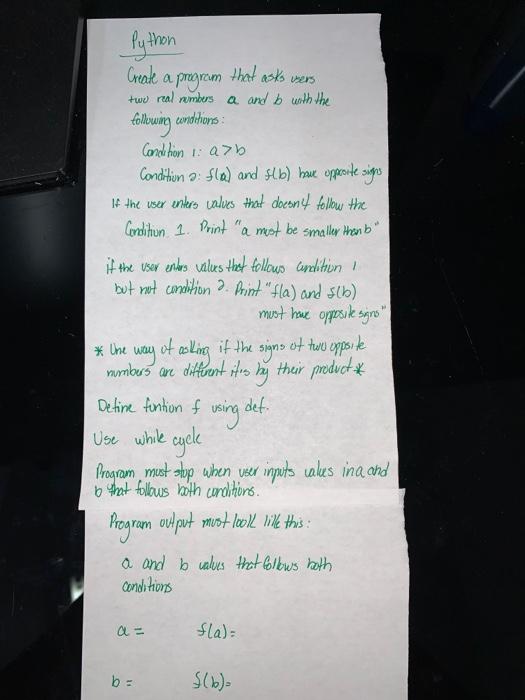 Python
Create a program that asks users
two real numbers a and b with the
following conditions:
Condition 1: a>b
Condition 2: f(a) and f(b) have opposite signs
If the user enters values that doesn't follow the
Condition 1. Print "a must be smaller than b"
if the user enters values that follows condition 1
but not condition 2. Print "f(a) and f(b)
must have opposite signs"
* One way of asking if the signs of two opposite
numbers are different it is by their product *
Define funtion f using def.
Use while cycle
Program must stop when user inputs values in a and
b that follows both conditions.
Program output must look like this:
a and b values that follows both
conditions
a = f(a)=
b = f(b)=